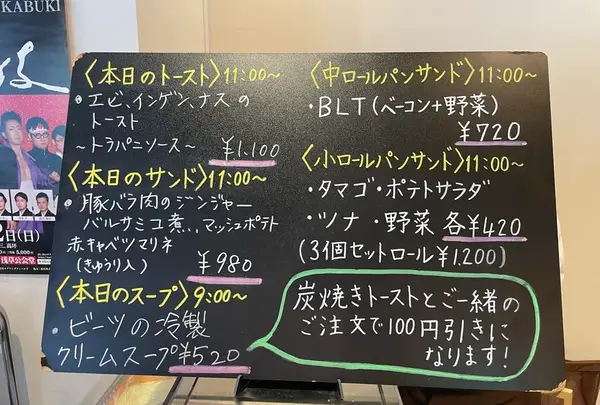 KABUKI
〈本日のトースト〉11:00～
・エビ、インゲン、ナスの
トースト
～トラパニソース～ ¥1,100
〈本日のサンド〉11:00～
・豚バラ肉のジンジャー
バルサミコ煮、、マッシュポテト
赤キャベツマリネ
(きゅうり入) ¥980
〈本日のスープ〉9:00～
・ビーツの冷製
クリームスープ¥520
〈中ロールパンサンド〉11:00～
・BLT(ベーコン+野菜)
¥720
〈小ロールパンサンド〉11:00～
・タマゴ・ポテトサラダ
・ツナ・野菜 各¥420
(3個セットロール¥1,200)
炭焼きトーストとご一緒の
ご注文で100円引きに
なります!
日(日)
浅草公会堂